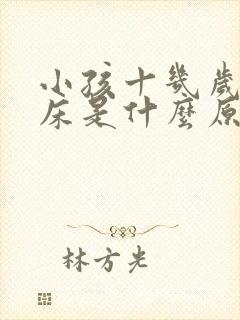 小孩十幾歲
床是什麼原
林方光